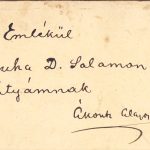 Emlékül
uha D. Salamon
tyámnak
Ákontz